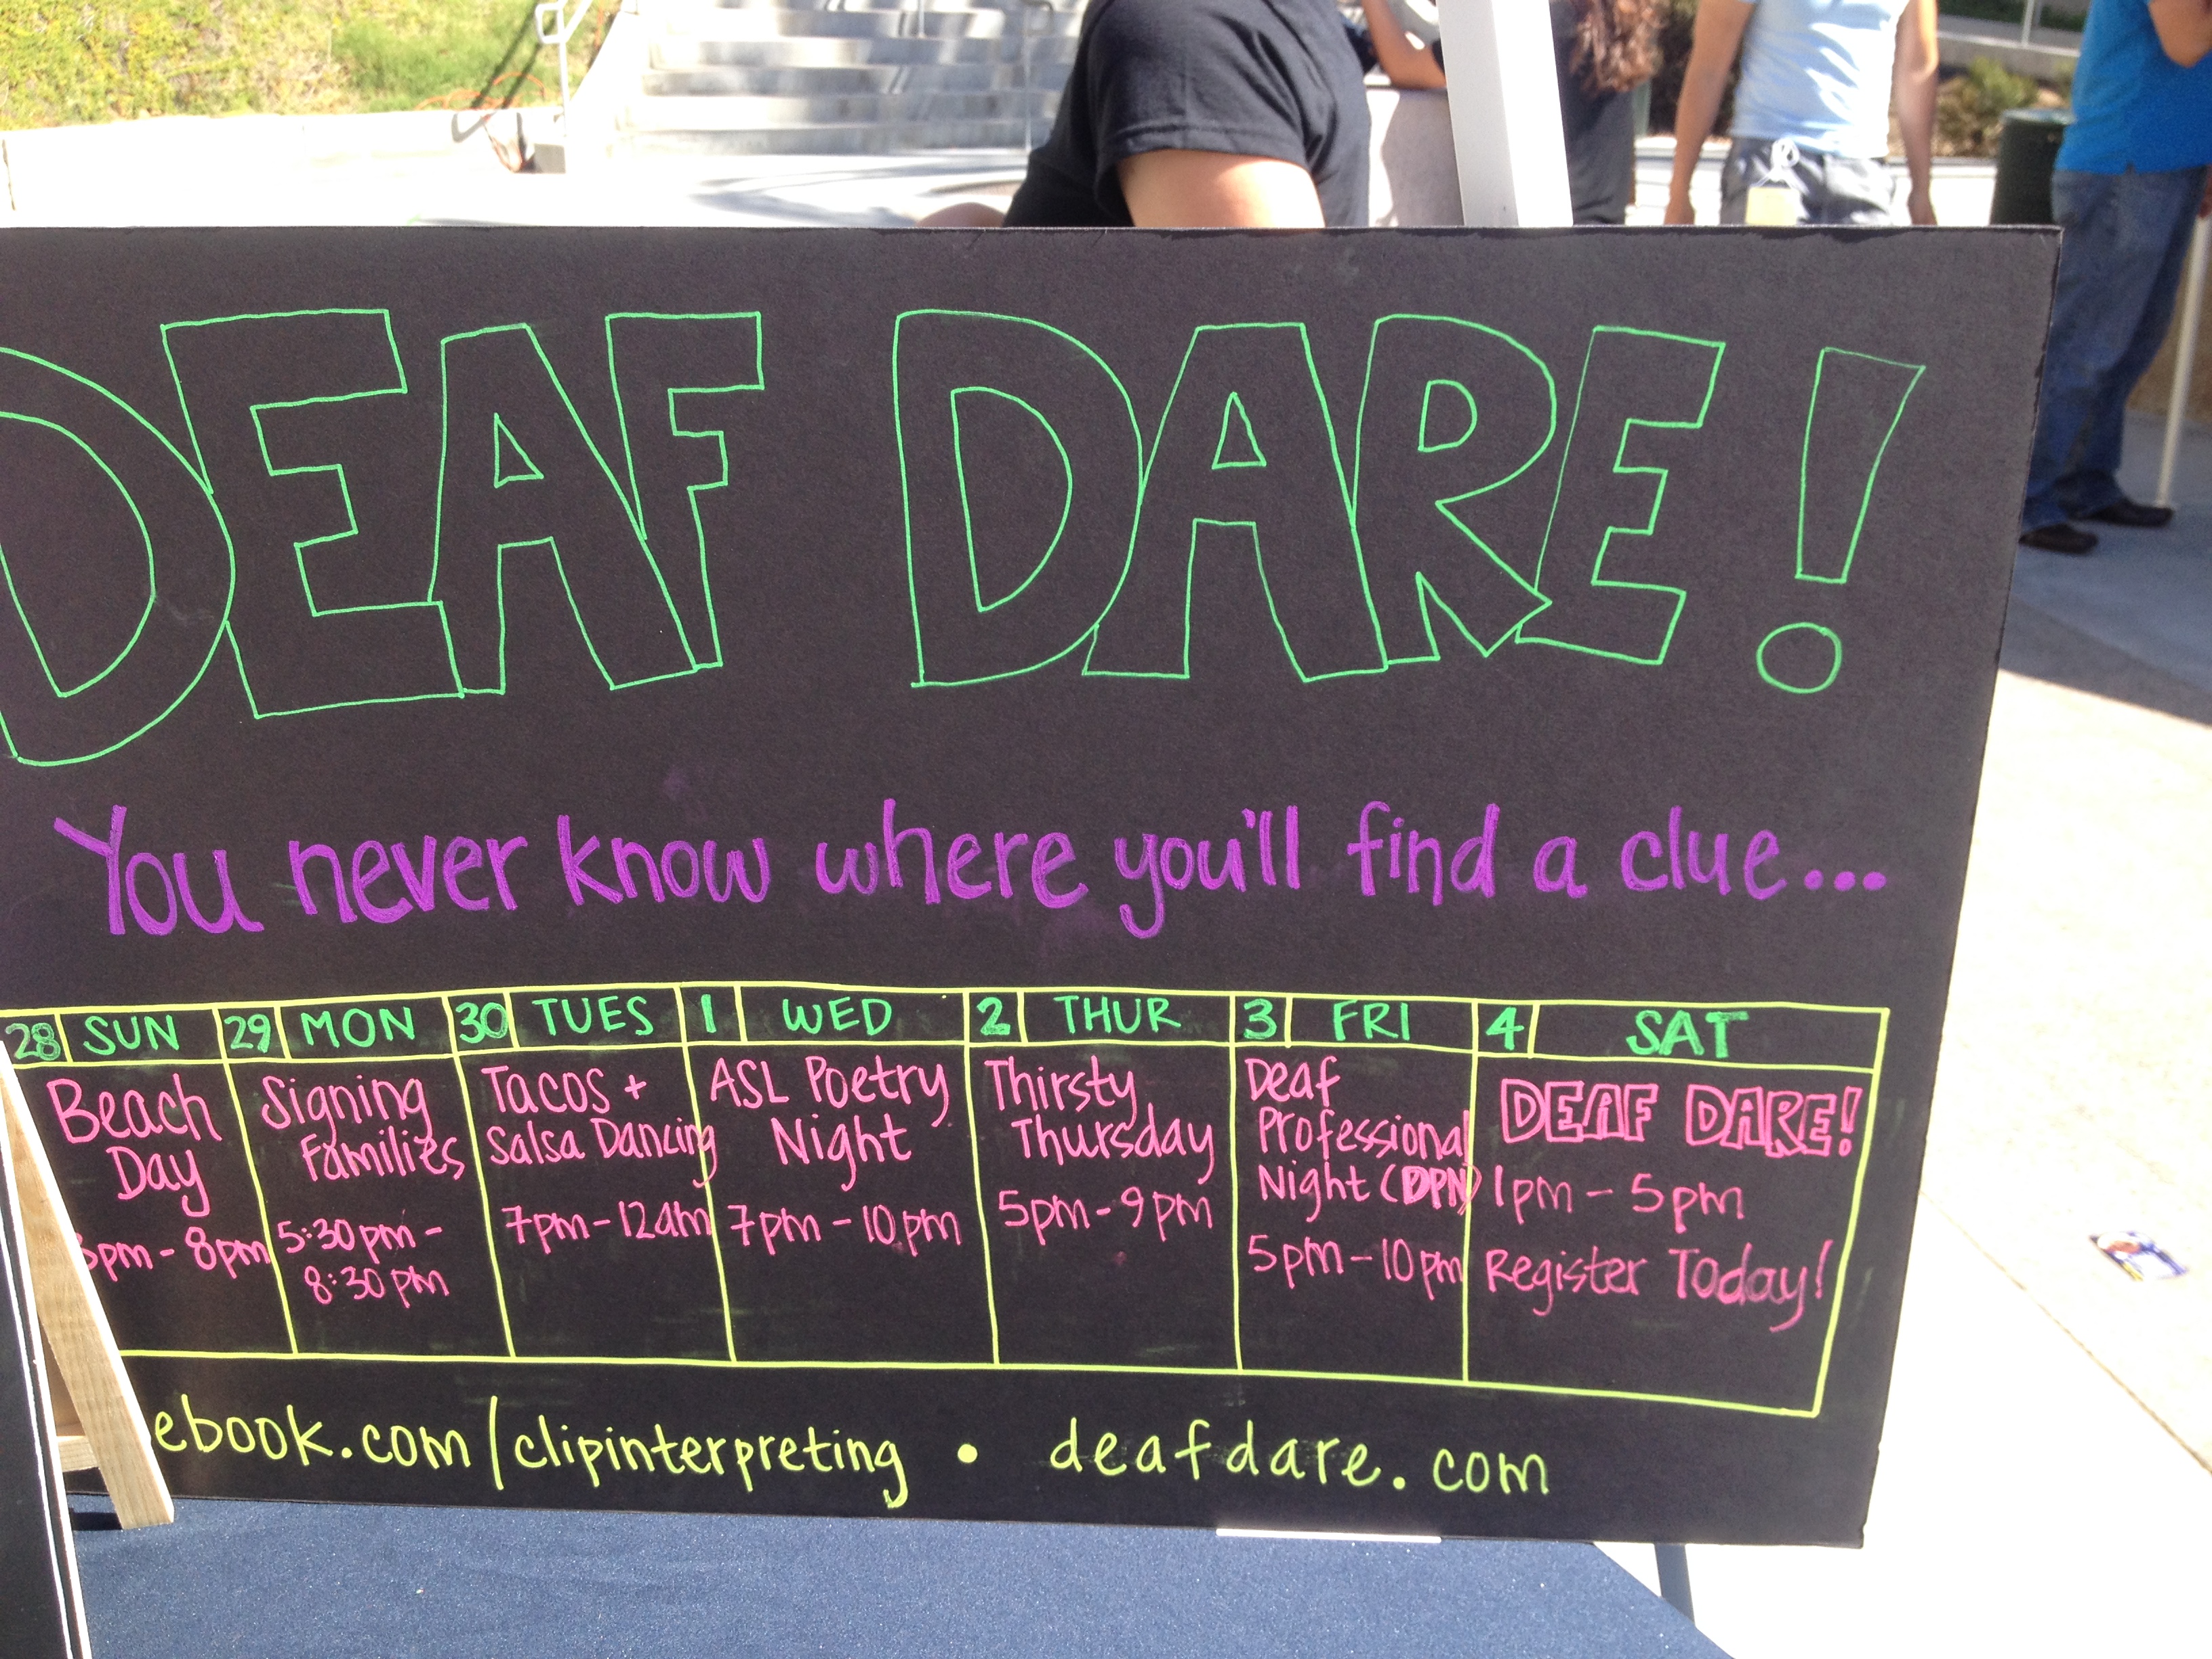 DEAF DARE!
You never know where you'll find a clue...
28 SUN 29 MON 30 TUES 1 WED 2 THUR 3 FRI 4 SAT
Beach
Day
- 8pm
Signing
Families
5:30pm -
8:30pm
Tacos +
Salsa Dancing
7pm - 12am
ASL Poetry
Night
7pm - 10pm
Thirsty
Thursday
5pm - 9pm
Deaf
Professional
Night (DPN)
5pm - 10pm
DEAF DARE!
1pm - 5pm
Register Today!
ebook.com/clipinterpreting • deafdare.com